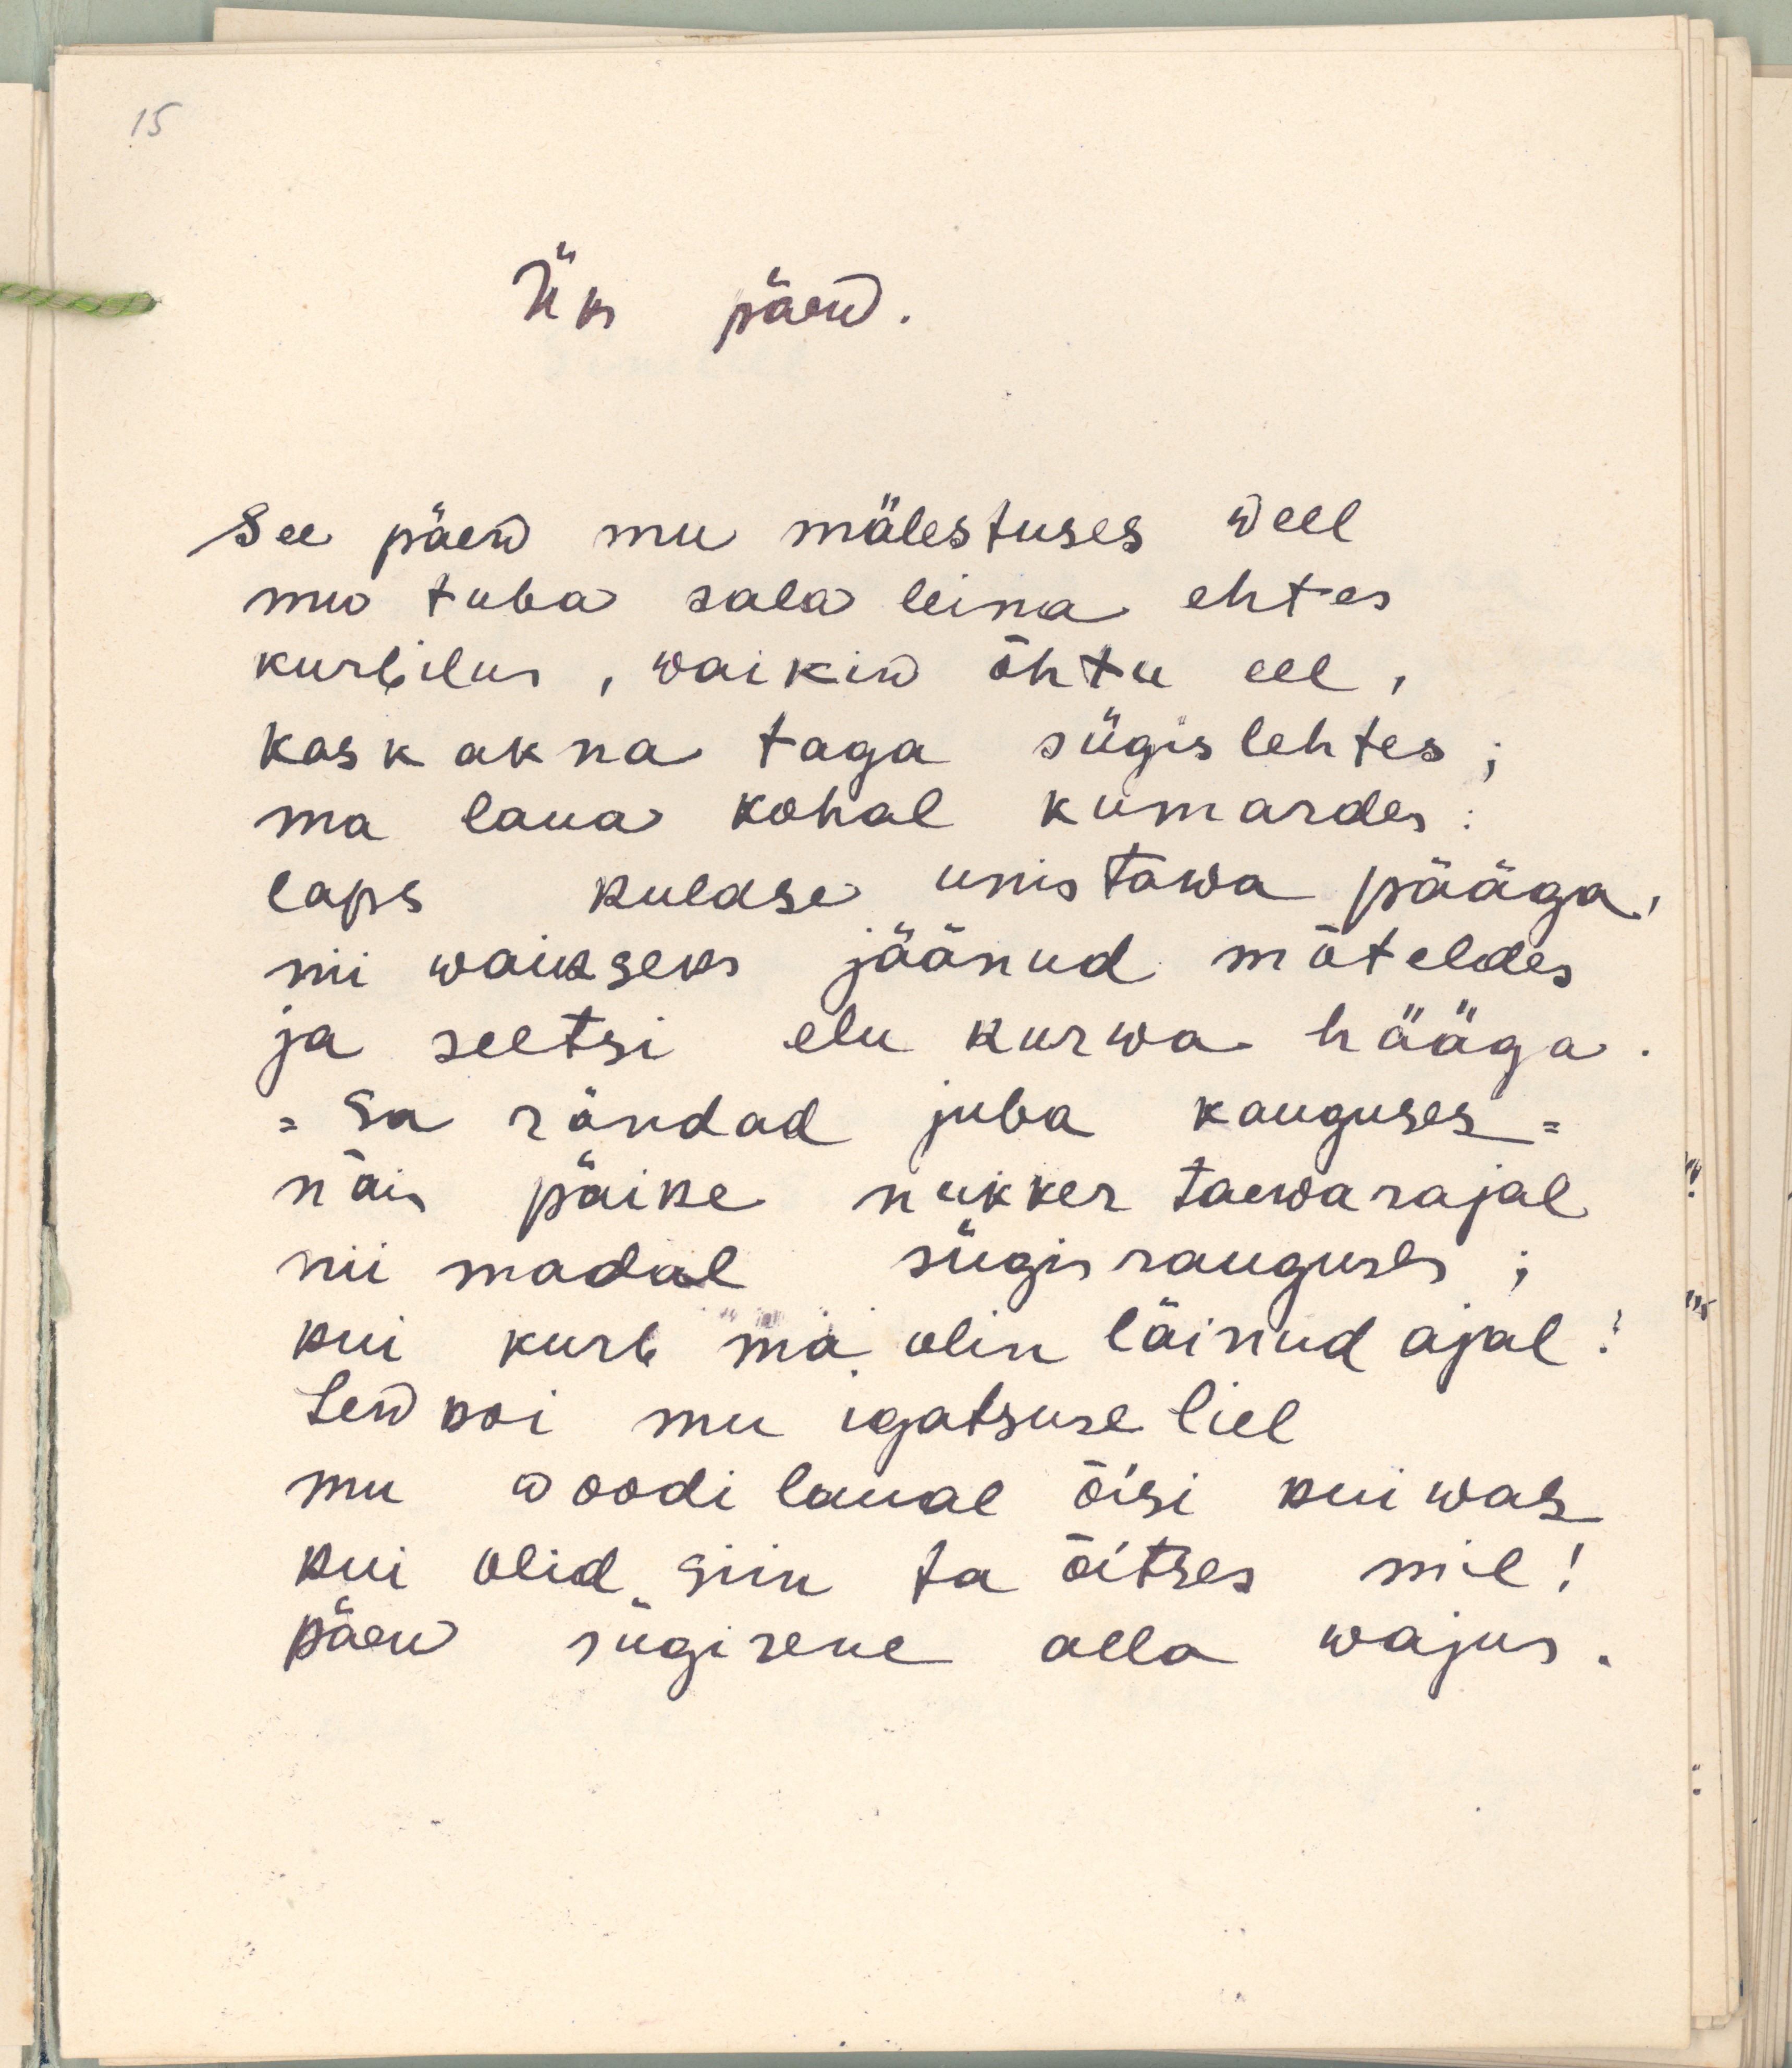 15
Üks päew.
See päew mu mälestuses weel
mu tuba sala leina ehtes
kurbilus, waikiw õhtu eel,
kask akna taga sügislehtes;
ma laua kohal kumardes:
laps kuldse unistawa pääga,
nii waikseks jäänud mõteldes
ja seetsi elu kurwa hääga.
= Sa rändad juba kauguses =
näis päike nukker taewarajal
nii madal sügisrauguses;
kui kurb ma olin läinud ajal!
Lewkoi mu igatsuse liel
mu woodi laual õisi kuiwas
kui olid siin ta õitses miel!
päew sügisene alla wajus.